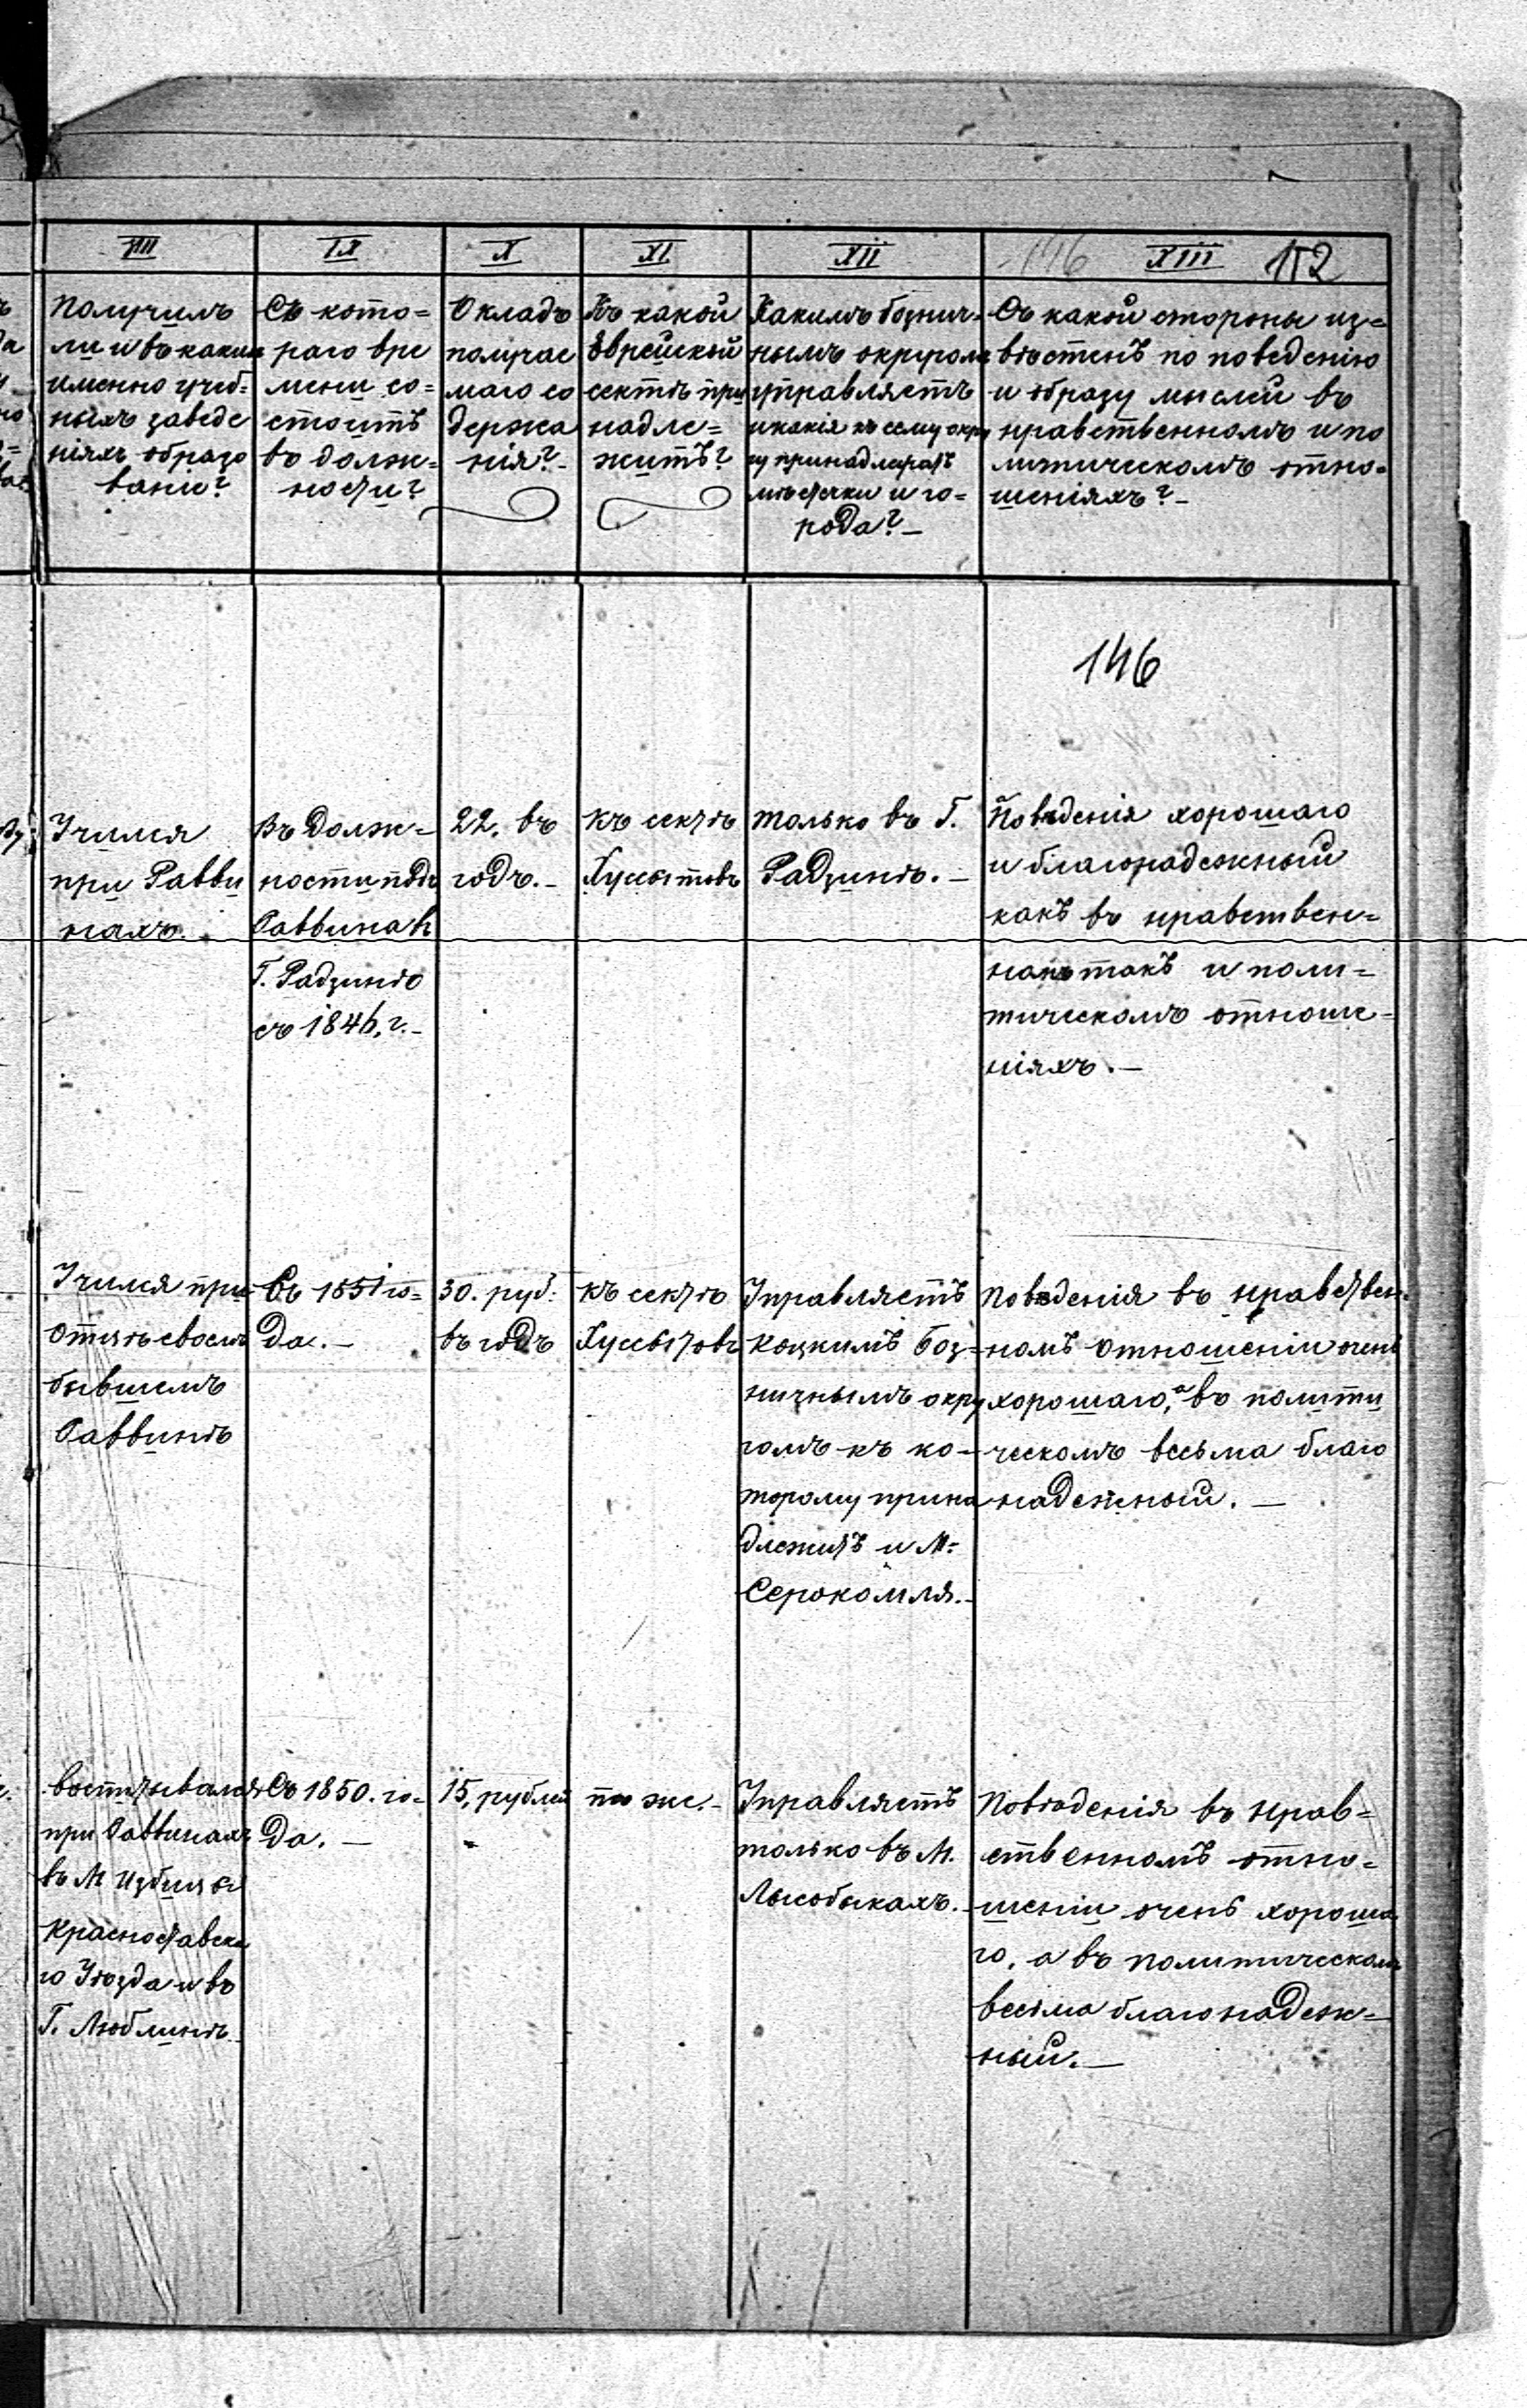 VIII
IX
X
XI
XII
146 XIII 152
Получилъ
ли и въ какихъ
именно учеб=
ныхъ заведе
ніяхъ образо
ваніи?
Съ кото=
раго вре
мени со=
стоитъ
въ долж=
ности?
Окладъ
получае
маго со
держа
нія?-
Къ какой
Еврейской
сектѣ при
надле=
житъ?
Какимъ божнич-
нымъ округомъ
управляетъ
и какія къ сему окру
гу принадлежатъ
мѣстечки и го=
рода?-
Съ какой стороны из=
вѣстенъ по поведенію
и образу мыслей въ
нравственномъ и по
литическомъ отно=
шеніяхъ?-
146
Учился
при Равви
нахъ.
Въ долж-
ности подъ
Раввина въ
Г. Радзинѣ
съ 1846, г.-
22. въ
годъ.-
къ сектѣ
Хуситовъ
только въ Г.
Радзинѣ.-
Поведенія хорошаго
и благонадежный
какъ въ нравствен=
номъ такъ и поли=
тическомъ отноше-
ніяхъ.-
Учился при
Отцѣ своемъ
бывшемъ
Раввинѣ
Съ 1851 го=
да.-
30. руб:
въ годъ
къ сектѣ
Хуситовъ
Управляетъ
Коцкимъ Бож-
ничнымъ окру
гомъ къ ко-
торому прина
длежитъ и М.
Серокомля.-
поведенія въ нравствен-
номъ отношеніи очень
хорошаго, а въ полити
ческомъ весьма благо
надежный.-
воспитывался
при Раввинахъ
въ М Избицы
Красноставска
го Уѣзда и въ
Г. Люблинѣ.
Съ 1850. го-
да.-
15, рублей
то же.-
Управляетъ
только въ М.
Лысобыкахъ.-
Поведенія въ нрав=
ственномъ отно=
шеніи очень хороша
го, а въ политическомъ
весьма благонадеж-
ный.-